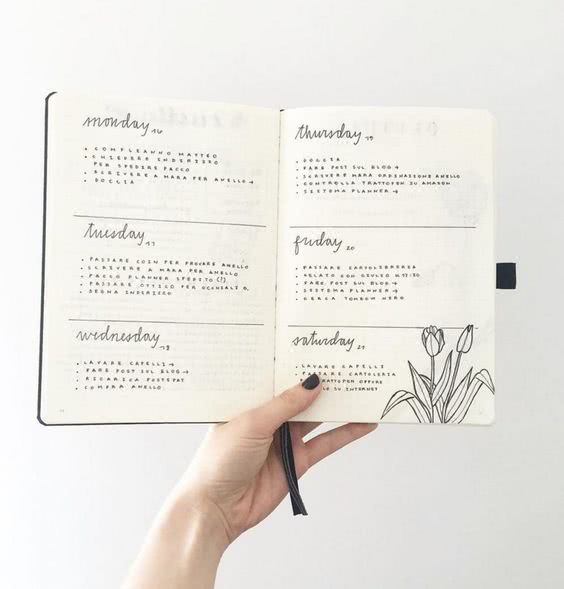 monday 16
• COMPLEANNO MATTEO
• CHIEDERE INDIRIZZO
PER SPEDIRE PACCO
• SCRIVERE A MARA PER ANELLO →
• DOCCIA
tuesday 17
• PASSARE COIN PER PROVARE ANELLO
• SCRIVERE A MARA PER ANELLO
• PACCO PLANNER SPEDITO (!)
• PASSARE OTTICO PER OCCHIALI G.
• SEGNA INDIRIZZO
wednesday 18
• LAVARE CAPELLI →
• FARE POST SUL BLOG →
• RICARICA POSTEPAY
• COMPRA ANELLO
thursday 19
• DOCCIA
• FARE POST SUL BLOG →
• SCRIVERE MARA ORDINAZIONE ANELLO
• CONTROLLA TRATTOPEN SU AMAZON
• SISTEMA PLANNER →
friday 20
• PASSARE CARTOLIBRERIA
• GELATO CON GIULIO H.17:30
• FARE POST SUL BLOG →
• SISTEMA PLANNER →
• CERCA TOMBOW NERO
saturday 21
• LAVARE CAPELLI
• PASSARE CARTOLERIA
TRATTOPEN OPPURE
SU INTERNET